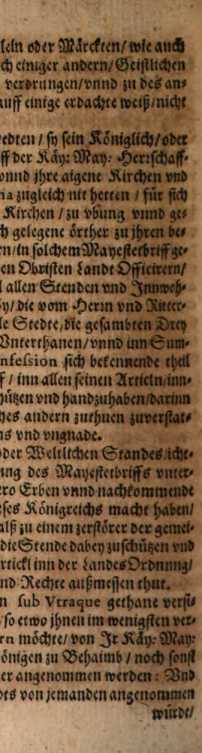 lein oder Märckten/ wie auch
ch einiger andern/ Geistlichen
verdrungen/ vnnd zu des an-
auff einige erdachte weiß/ nicht
edten / sy sein Königlich/ oder
ff der Käy: May: Herrschaff-
vnnd jhre aigene Kirchen vnd
na zugleich nit hetten / für sich
Kirchen / zu vbung vnnd ge-
ch gelegene örther zu jhren be-
rn/ in solchem Mayestetbriff ge-
en Obristen Landt Officirern/
l allen Stenden vnd Innweh-
y/ die vom Herrn vnd Ritter-
le Stedte, die gesambten Drey
Vnterthanen/ vnnd inn Sum-
nfession sich bekennende theil
ff / inn allen seinen Articln/ inn-
hützen vnd handzuhaben/ darinn
hes andern zuthuen zuverstat-
ns vnd vngnade.
oder Weltlichen Standes, icht-
ung des Mayestetbriffs vnter-
ero Erben vnnd nachkommende
eses Königreichs macht haben/
alß zu einem zerstörer der gemei-
die Stende dabey zuschützen vnd
rtickl inn der Landes Ordnung/
nd Rechte außmessen thut.
n sub Vtraque gethane versi-
so etwo jhnen im wenigsten ver-
rn möchte/ von Jr Käy: May:
önigen zu Behaimb / noch sonst
er angenommen werden: Vnd
dts von jemanden angenommen
würde/